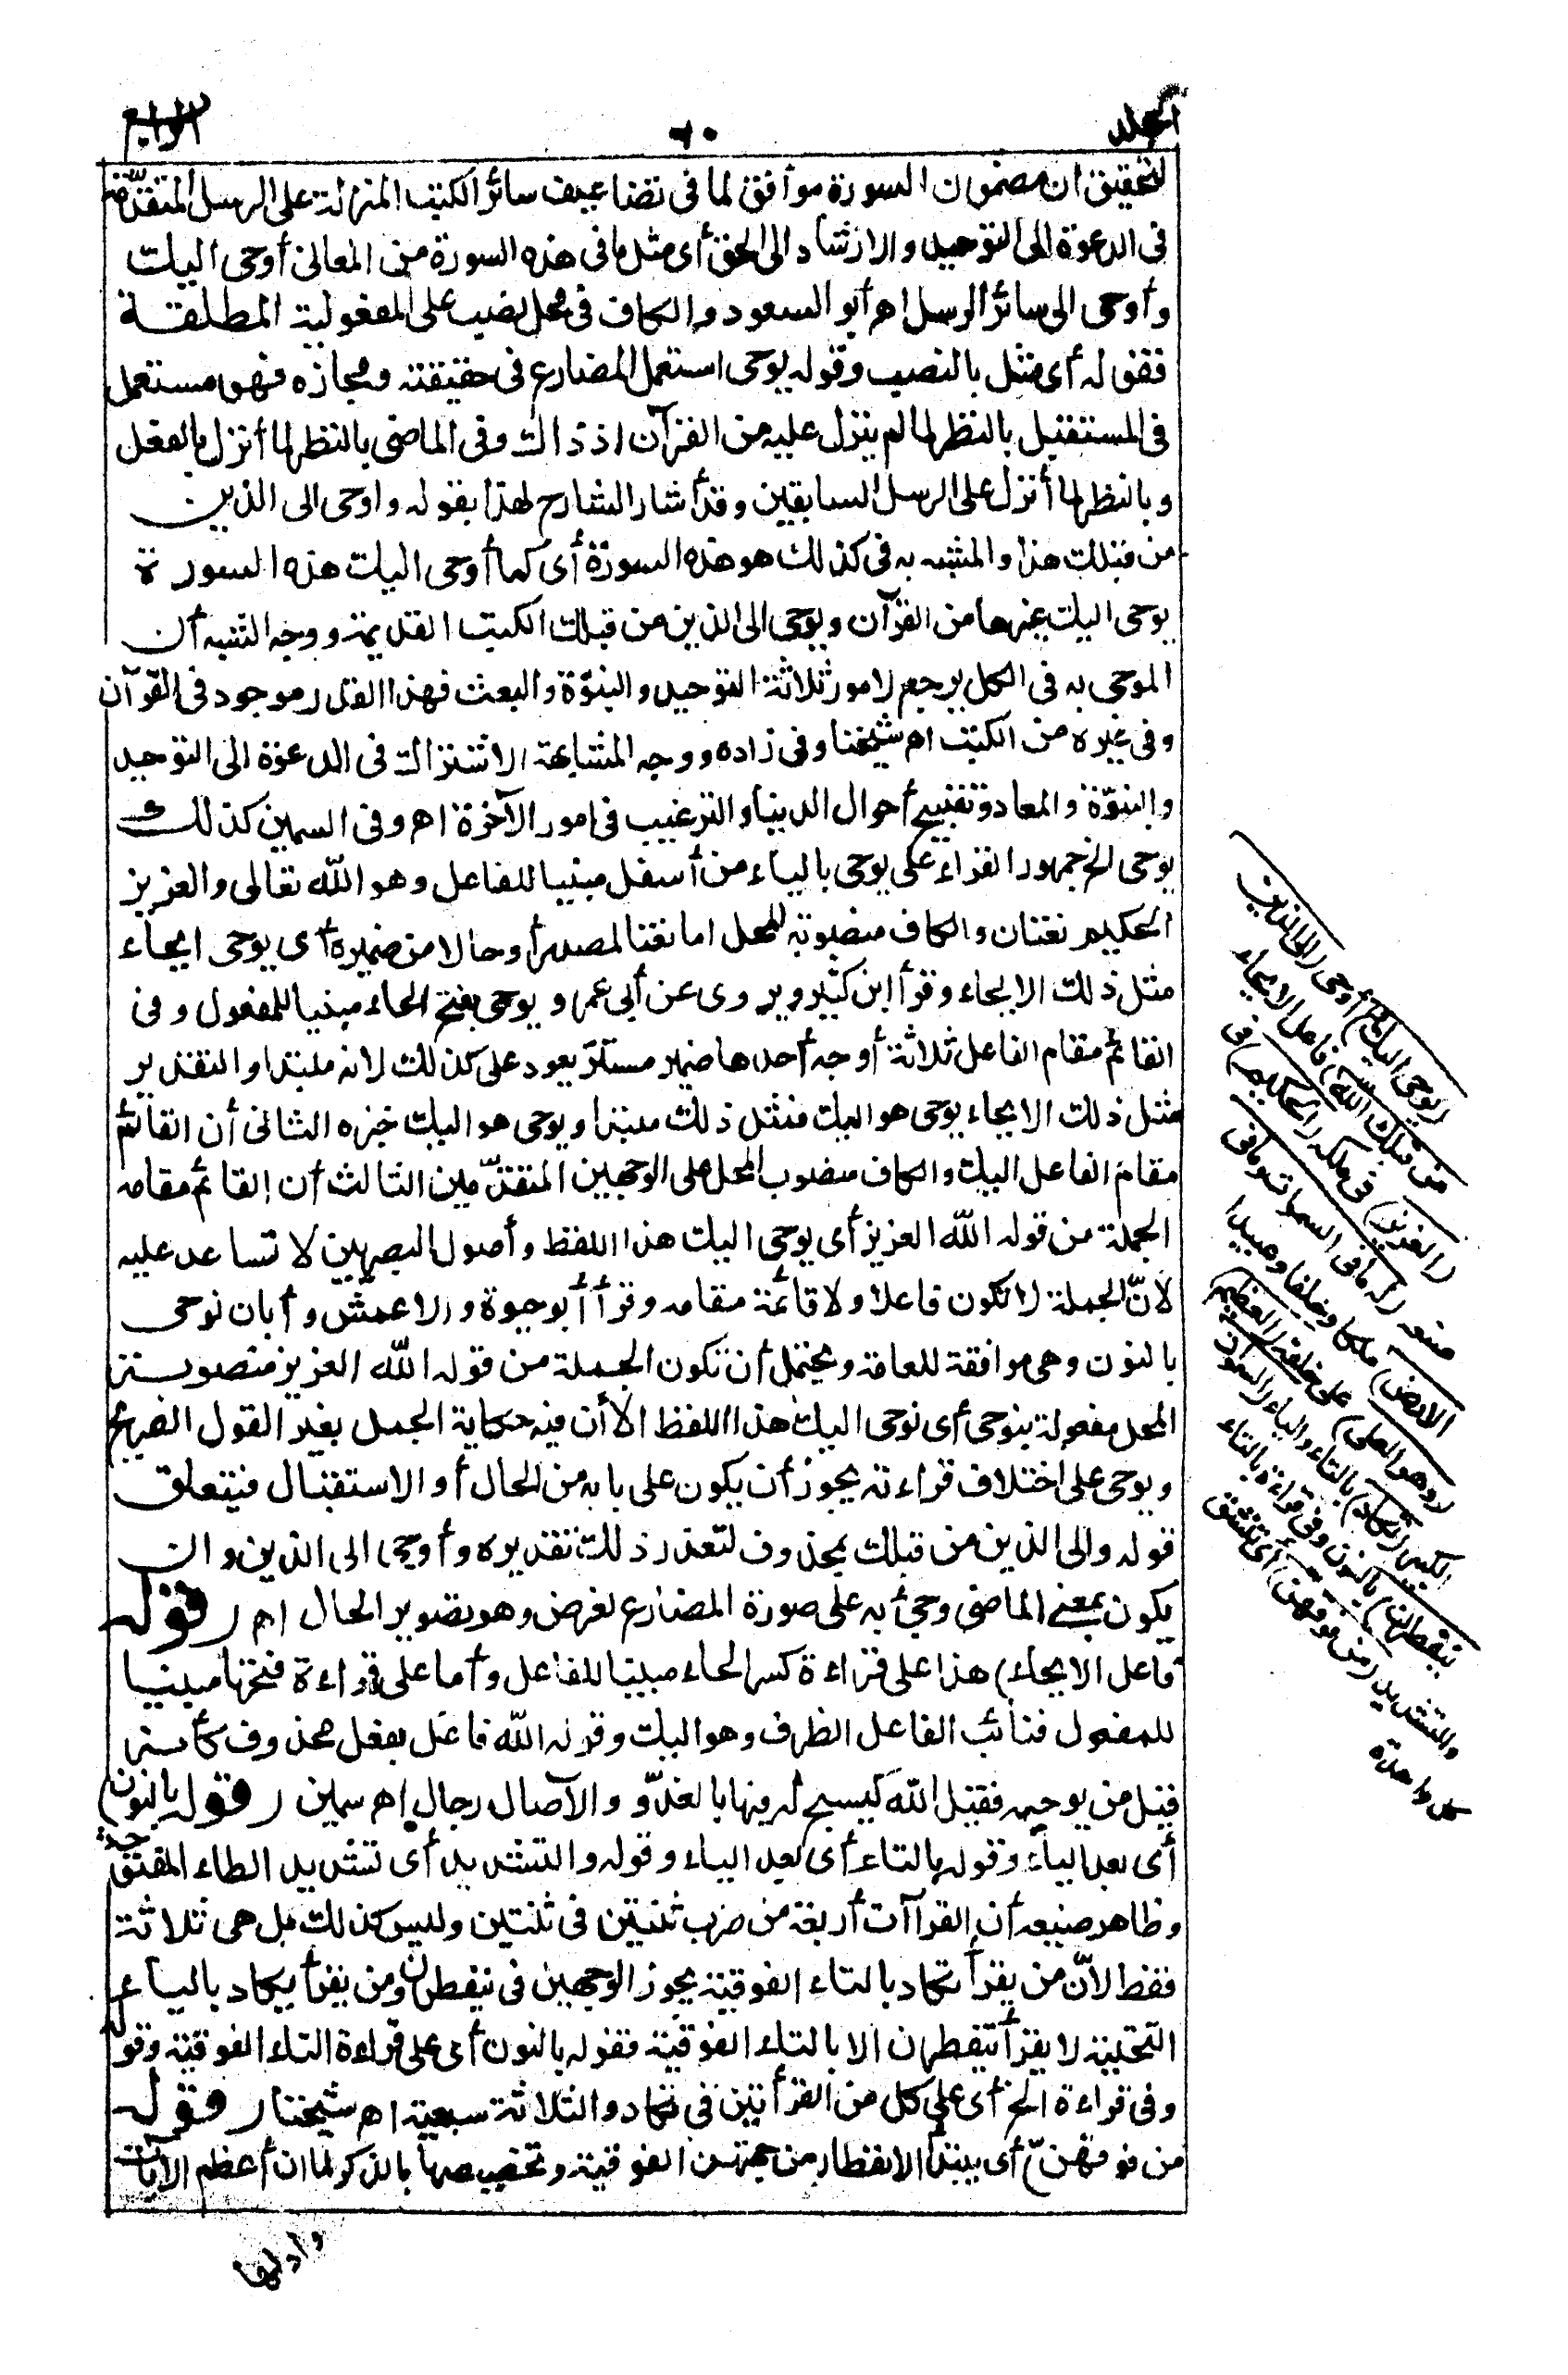 الجلد
٦٠
الرابع
لتحقيق ان مضمون السورة موافق لما فى تضاعيف سائر الكتب المنزلة على الرسل المتقدّمة
فى الدعوة الى التوحيد والارشاد الى الحق أى مثل ما فى هذه السورة من المعانى أوحى اليك
وأوحى الى سائر الرسل اهـ أبو السعود والكاف فى محل نصب على المفعولية المطلقة
فقوله أى مثل بالنصب وقوله يوحى استعمل المضارع فى حقيقته ومجازه فهو مستعمل
فى المستقبل بالنظر لما لم ينزل عليه من القرآن اذ ذاك وفى الماضى بالنظر لما أنزل بالفعل
وبالنظر لما أنزل على الرسل السابقين وقد أشار الشارح لهذا بقوله واوحى الى الذين
من قبلك هذا والمشبه به فى كذلك هو هذه السورة أى كما أوحى اليك هذه السورة
يوحى اليك غيرها من القرآن ويوحى الى الذين من قبلك الكتب القديمة ووجه التشبه أن
الموحى به فى الكل يرجع لامور ثلاثة التوحيد والنبوّة والبعث فهذا القدر موجود فى القرآن
وفى غيره من الكتب اهـ شيخنا وفى زاده ووجه المشابهة الاشتراك فى الدعوة الى التوحيد
والنبوّة والمعاد وتقبيح أحوال الدنيا والترغيب فى امور الآخرة اهـ وفى السمين كذلك
يوحى الخ جمهور القراء على يوحى بالياء من أسفل مبنيا للفاعل وهو الله تعالى والعزيز
الحكيم نعتان والكاف منصوبة المحل اما نعتا لمصدر أو حالا من ضميره أى يوحى ايحاء
مثل ذلك الايحاء وقرأ ابن كثير ويروى عن أبى عمرو يوحى بفتح الحاء مبنيا للمفعول وفى
القائم مقام الفاعل ثلاثة أوجه أحدها ضمير مستتر يعود على كذلك لانه مبتدا والتقدير
مثل ذلك الايحاء يوحى هو اليك فمثل ذلك مبتدا ويوحى هو اليك خبره الثانى أن القائم
مقام الفاعل اليك والكاف منصوب المحل على الوجهين المتقدّمين الثالث أن القائم مقامه
الجملة من قوله الله العزيز أى يوحى اليك هذا اللفظ وأصول البصريين لا تساعد عليه
لانّ الجملة لا تكون فاعلا ولا قائمة مقامه وقرأ أبو حيوة والاعمش وأبان نوحى
بالنون وهى موافقة للعامة ويحتمل أن تكون الجملة من قوله الله العزيز منصوبة
المحل مفعولة بنوحى أى نوحى اليك هذا اللفظ الا أن فيه حكاية الجمل بغير القول الصريح
ويوحى على اختلاف قراءته يجوز أن يكون على بابه من الحال أو الاستقبال فيتعلق
قوله والى الذين من قبلك بمحذوف لتعذر ذلك تقديره وأوحى الى الذين وان
يكون بمعنى الماضى وجئ به على صورة المضارع لغرض وهو تصوير الحال اهـ (قوله
فاعل الايحاء) هذا على قراءة كسر الحاء مبنيا للفاعل وأما على قراءة فتحها مبنيا
للمفعول فنائب الفاعل الظرف وهو اليك وقوله الله فاعل بفعل محذوف كأنه
قيل من يوحيه فقيل الله كيسبح له فيها بالغدوّ والآصال رجال اهـ سمين (قوله بالنون)
أى بعد الياء وقوله بالتاء أى بعد الياء وقوله والتشديد أى تشديد الطاء المفتوحة
وظاهر صنيعه أن القراآت أربعة من ضرب ثنتين فى ثنتين وليس كذلك بل هى ثلاثة
فقط لانّ من يقرأ تكاد بالتاء الفوقية يجوز الوجهين فى يتفطرن ومن يقرأ يكاد بالياء
التحتية لا يقرأ يتفطرن الا بالتاء الفوقية فقوله بالنون أى على قراءة التاء الفوقية وقوله
وفى قراءة الخ أى على كل من القرأتين فى تكاد والثلاثة سبعية اهـ شيخنا (قوله
من فوقهنّ) أى يبتدأ الانفطار من جهتهن الفوقية وتخصيصها بالذكر لما ان أعظم الآيات
وادلها
(يوحى اليك و) أوحى (الى الذين
من قبلك الله) فاعل الايحاء
(العزيز) فى ملكه (الحكيم) فى
صنعه (له ما فى السموات وما فى
الارض) ملكا وخلقا وعبيدا
(وهو العلى) على خلقه (العظيم)
الكبير (تكاد) بالتاء والياء (السموات
ينفطرن) بالنون وفى قراءة بالتاء
والتشديد (من فوقهن) أى تنشق
كل واحدة